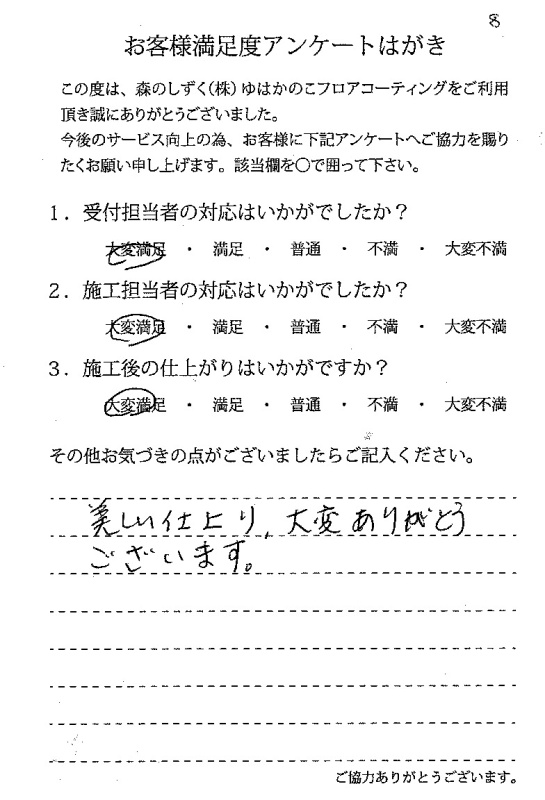 8
お客様満足度アンケートはがき
この度は、森のしずく(株)ゆはかのこフロアコーティングをご利用
頂き誠にありがとうございました。
今後のサービス向上の為、お客様に下記アンケートへご協力を賜り
たくお願い申し上げます。該当欄を〇で囲って下さい。
1．受付担当者の対応はいかがでしたか？
大変満足 ・ 満足 ・ 普通 ・ 不満 ・ 大変不満
2．施工担当者の対応はいかがでしたか？
大変満足 ・ 満足 ・ 普通 ・ 不満 ・ 大変不満
3．施工後の仕上がりはいかがですか？
大変満足 ・ 満足 ・ 普通 ・ 不満 ・ 大変不満
その他お気づきの点がございましたらご記入ください。
美しい仕上り、大変ありがとう
ございます。
ご協力ありがとうございます。